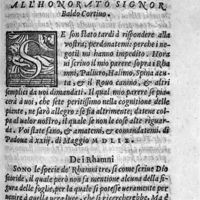 ALL'HONORATO SIGNOR
Baldo Cortino.
SE son stato tardi à rispondere alla
vostra, perdonatemi: perche i ne-
gotij mi hanno impedito. Horà
vi scrivo il mio parere sopra i Rha
mni, Paliuro, Halimo, Spina acu-
ta, & il Rovo canino, & altri
semplici da voi dimandati. Il qual mio parere se pia-
cerà à voi, che sete peritissimo nella cognitione delle
piante, ne sarò allegro: se sia altrimente; datene
qual color, vostro, si come è
guardo. Voi state sano, & amatemi, & comandatemi. di
Padoua à xxiij. di Maggio M D L I X.
Dei Rhamni
SONO le specie de' Rhamni tre, si come scrive Dio
scoride, il quale però non fa mentione alcuna della fi-
gura delle foglie, per la quale si potesse veramente per
venire à quella vera